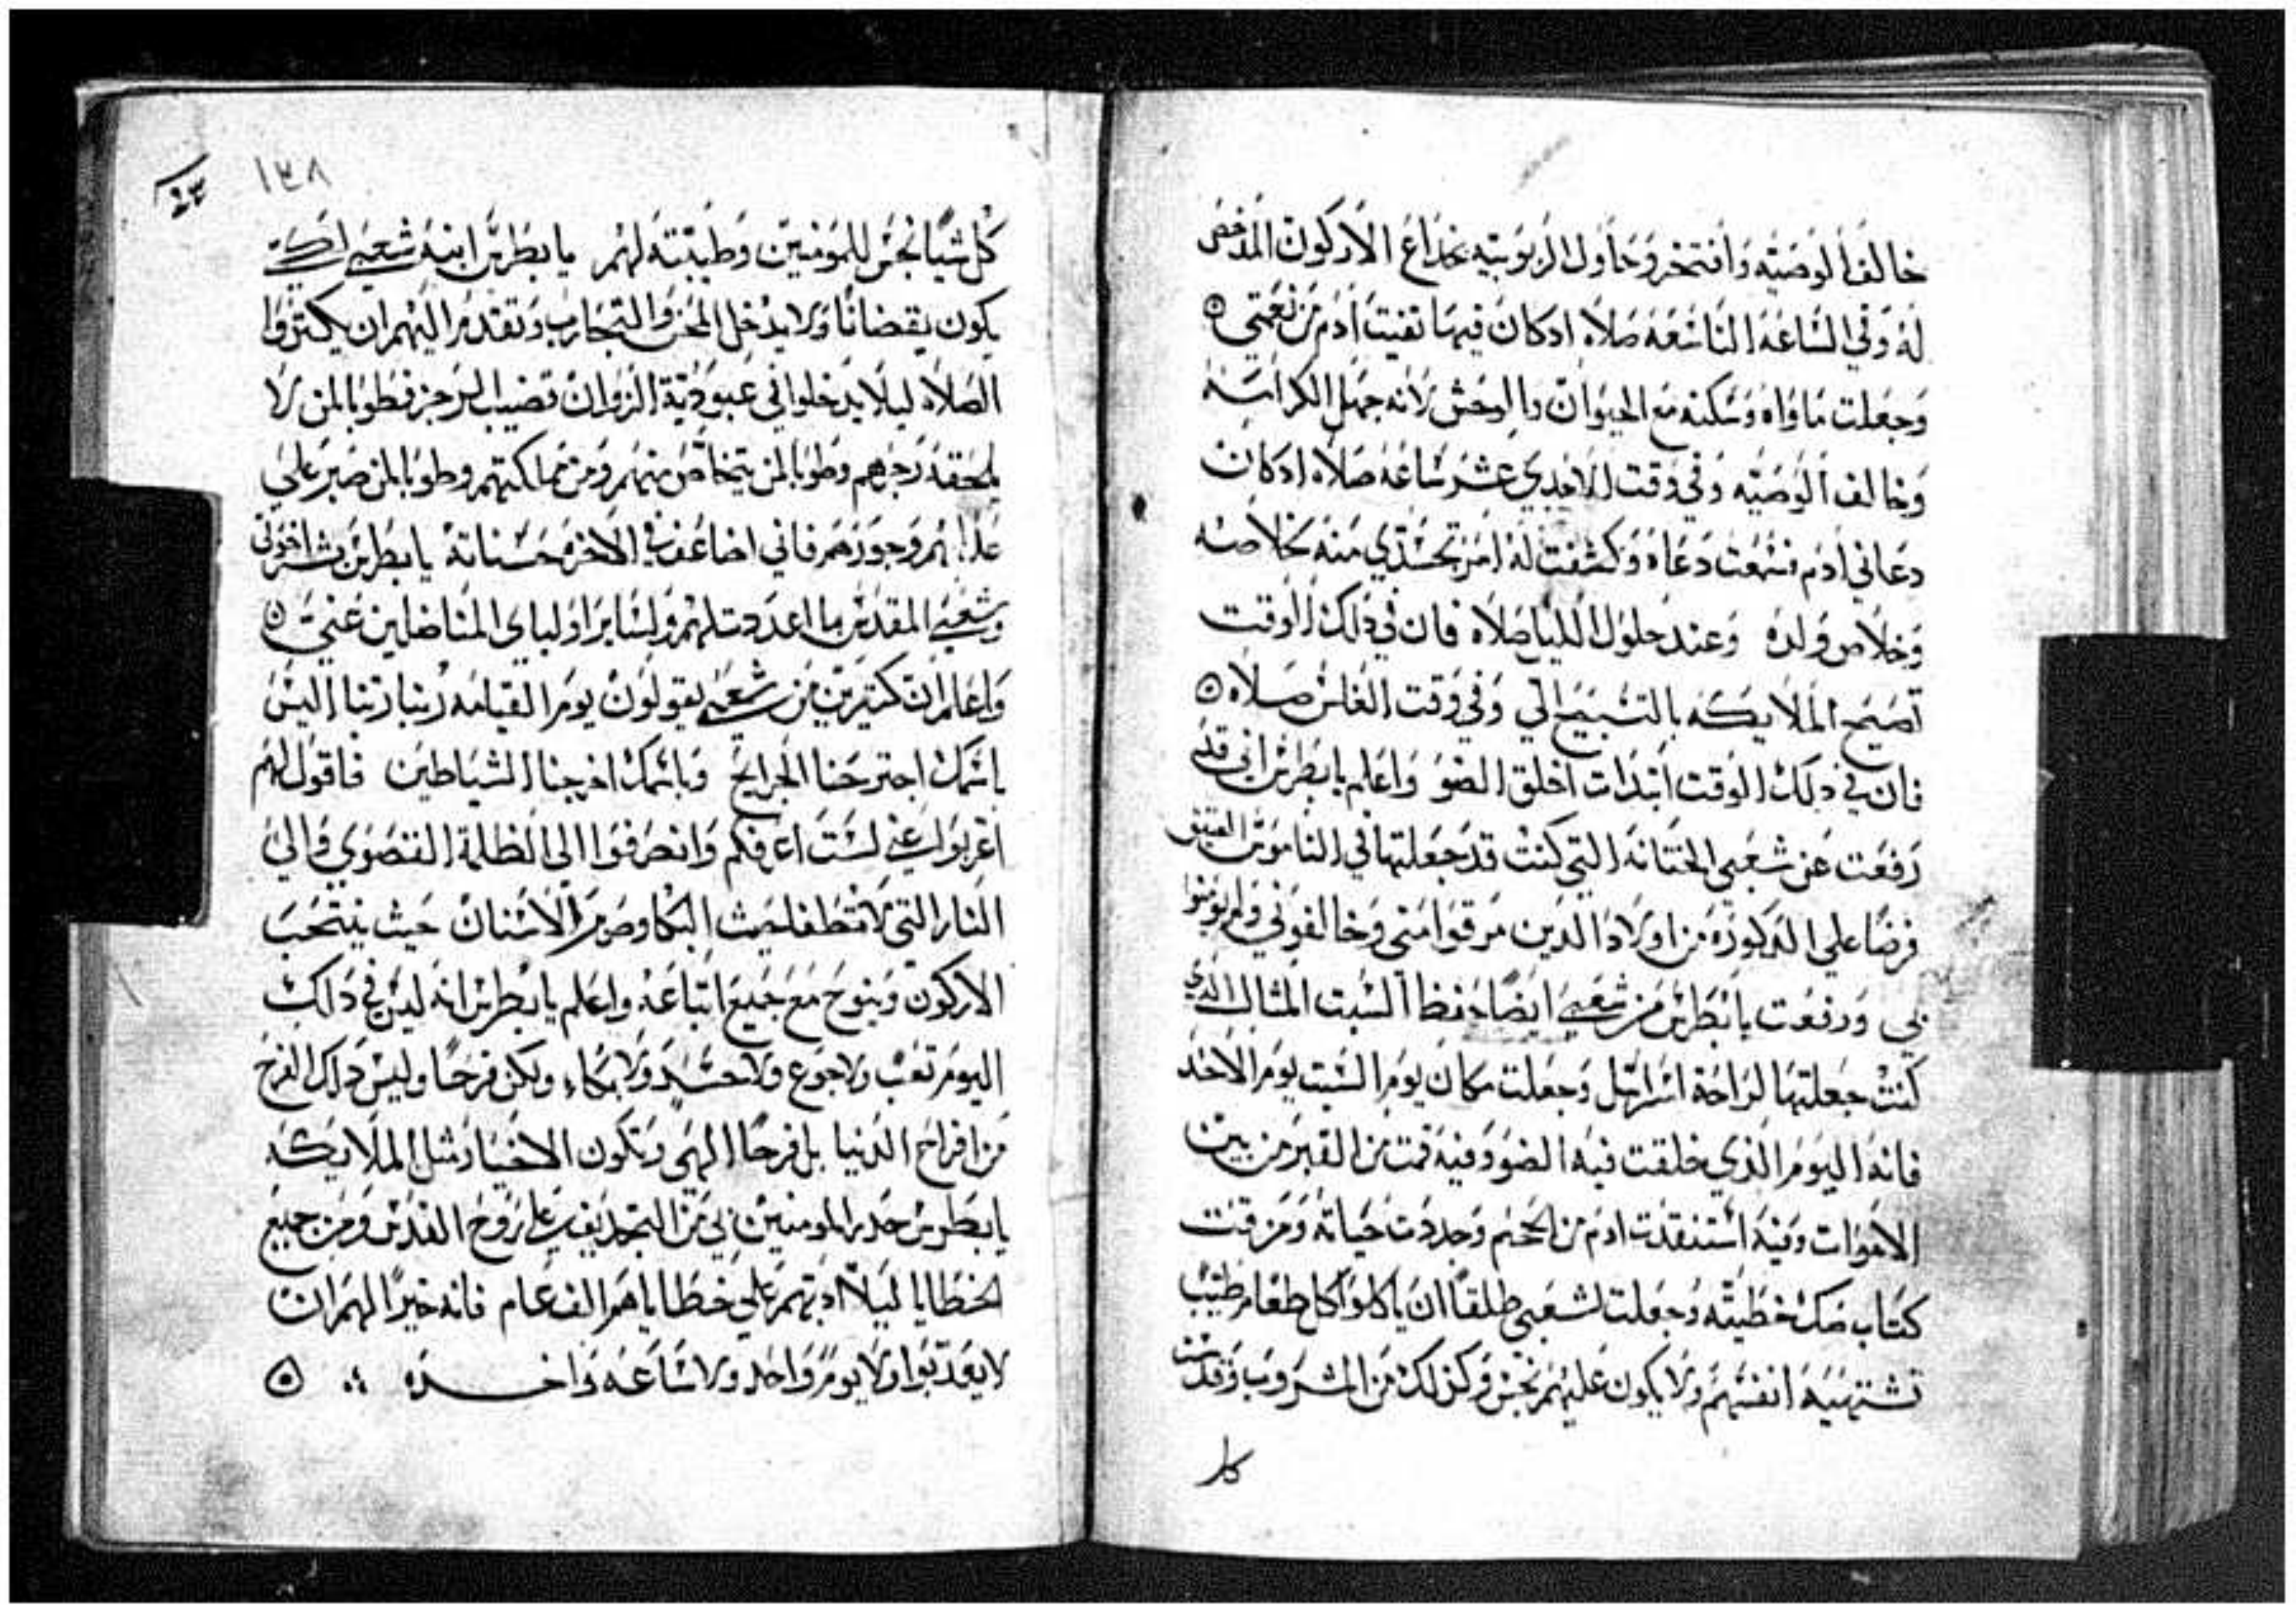 خالف الوصيه وافتخر وحاول الربوبيه بخداع الاركون المدحض
له وفي الساعه التاسعه صلاه ادكان فيها نفيت ادم من نعمتي
وجعلت ماواه وسكنه مع الحيوان والوحش لانه جهل الكرامه
وخالف الوصيه وفي وقت الاحدي عشر ساعه صلاه ادكان
دعاني ادم فسمعت دعاه وكشفت له امر تجسدي منه بخلاصه
وخلاص ولده وعند حلول الليل صلاه فان في دلك الوقت
تصيح الملايكه بالتسبيح الي وفي وقت الغلس صلاه
فان في دلك الوقت ابتدات اخلق الضو واعلم يابطرس اني قد
رفعت عن شعبي الختانه التي كنت قد جعلتها في الناموس العتيق
فرضا علي الدكوره من اولاد الدين مرقوا مني وخالفوني ولم يومنوا
بي ورفعت يابطرس من شعبي ايضا حفظ السبت المثال الدي
كنت جعلتها لراحة اسراييل وجعلت مكان يوم السبت يوم الاحد
فانه اليوم الذي خلقت فيه الضو وفيه قمت من القبر من بين
الاموات وفيه استنقدت ادم من الجحيم وجددت حياته ومزقت
كتاب صك خطيته وجعلت لشعبي طلقا ان ياكلوا كل طعام طيب
تشتهيه انفسهم ولا يكون عليهم نجس وكذلك من المشروب وقدست
كل
١٣٨
كل شيا نجس للمومنين وطيبته لهم يابطرس انبه شعبي لكي
يكون يقضانا ولا يدخل المحن والتجارب وتقدم اليهم ان يكتروا
الصلاه ليلا يدخلوا في عبودية الزوان قضيب الرجز فطوبا لمن لا
يلحقه رجزهم وطوبا لمن يتخلص منهم ومن مملكتهم وطوبا لمن صبر علي
عدابهم وجورهم فاني اضاعف في الاخره حسناته يابطرس بشر اخوتي
وشعبي المقدس بما اعددت لهم ولساير اولياي المناضلين عني
واعلم ان كتيرين من شعبي يقولون يوم القيامه ربنا ربنا اليس
باسمك اجترحنا الجرايح وباسمك اخرجنا الشياطين فاقول لهم
اغربوا عني لست اعرفكم وانصرفوا الي الظلمة القصوي والي
النار التي لا تطفا حيث البكا وصرير الاسنان حيث ينتحب
الاركون وينوح مع جميع اتباعه واعلم يابطرس انه ليس في دلك
اليوم تعب ولا جوع ولا حسد ولا بكاء ولكن فرحا وليس دلك الفرح
من افراح الدنيا بل فرحا الهي وتكون الاخيار مثل الملايكه
يابطرس حدر المومنين بي من التجديف علي روح القدس ومن جميع
الخطايا ليلا ادبهم علي خطاياهم الف عام فانه خيرا لهم ان
لا يعدبوا ولا يوم واحد ولا ساعه واحده